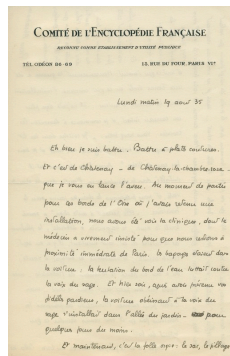 COMITÉ DE L'ENCYCLOPÉDIE FRANÇAISE
RECONNU COMME ÉTABLISSEMENT D'UTILITÉ PUBLIQUE
TÉL. ODÉON
13, RUE DU FOUR, PARIS VIe
Lundi matin 19 août 35
Eh bien je suis battu. Battu à plate couture.
Et c'est de Châtenay - de Châtenay-la-chambre
que je vous en lance l'aveu. Au moment de partir
pour les bords de l'Oise où j'avais retenu une
installation, nous avons été voir la clinique, dont le
médecin a vivement insisté pour que nous restions à
proximité immédiate de Paris. Le bagage étant dans
la voiture. La tentation du bord de l'eau luttait contre
la voix du sage. Et hier soir, après avoir
la voiture obéissant à la voix du
sage s'installait dans l'allée du jardin - pour
quelques jours du moins.
Et maintenant, c'est la folle : le sac, le pillage